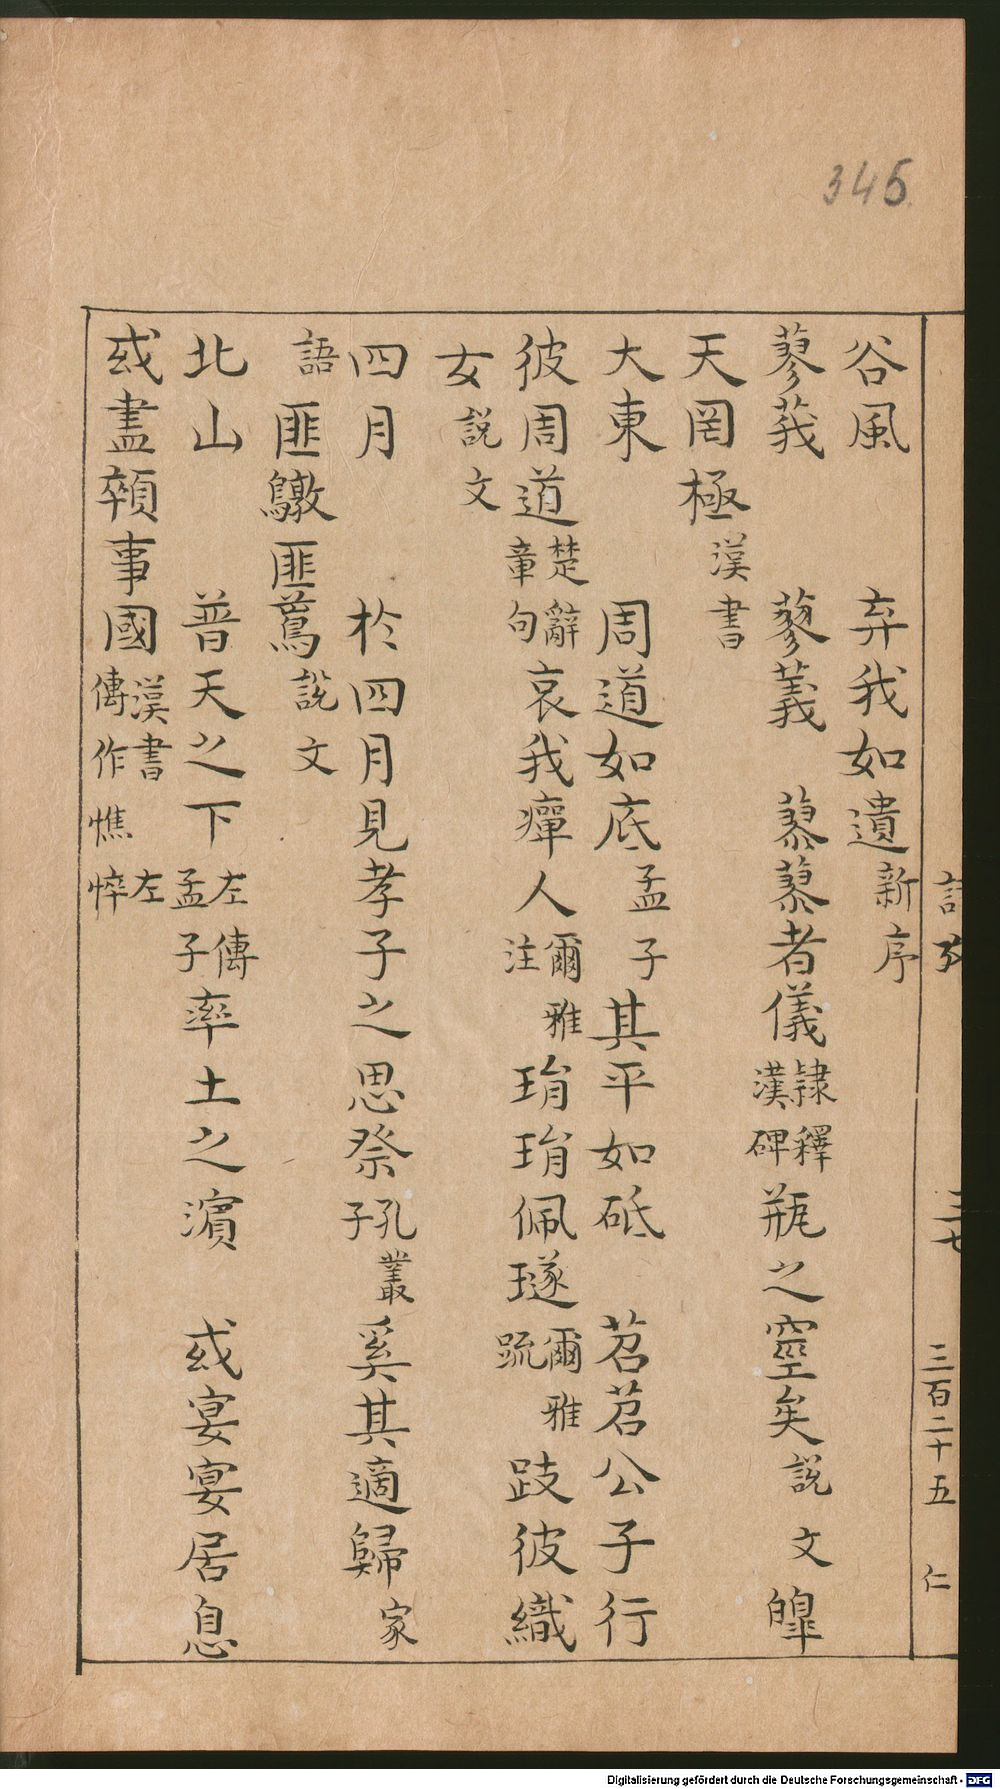 345
谷風 弃我如遺新序
蓼莪 蓼義 蓼蓼者儀隸釋漢碑瓶之窒矣說文皥
天罔極漢書
大東 周道如底孟子其平如砥 苕苕公子行
彼周道楚辭章句哀我癉人爾雅注琄琄佩璲爾雅疏跂彼織
女說文
四月 於四月見孝子之思祭孔叢子奚其適歸家
語 匪鷻匪蔿說文
北山 普天之下左傳孟子率土之濱 或宴宴居息
或盡顇事國漢書左傳作憔悴
三百二十五 仁
Digitalisierung gefördert durch die Deutsche Forschungsgemeinschaft - DFG